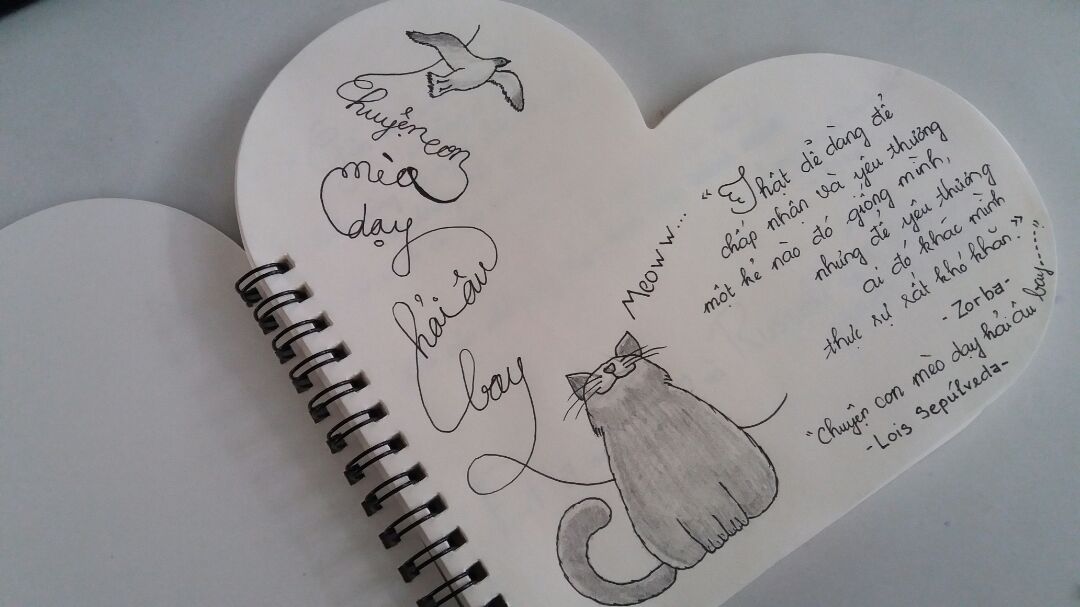 chuyện con
mèo
dạy
hải âu
bay
Meoww...
"Thật dễ dàng để
chấp nhận và yêu thương
một kẻ nào đó giống mình,
nhưng để yêu thương
ai đó khác mình
thực sự rất khó khăn."
- Zorba-
"Chuyện con mèo dạy hải âu bay....."
-Lois Sepúlveda-